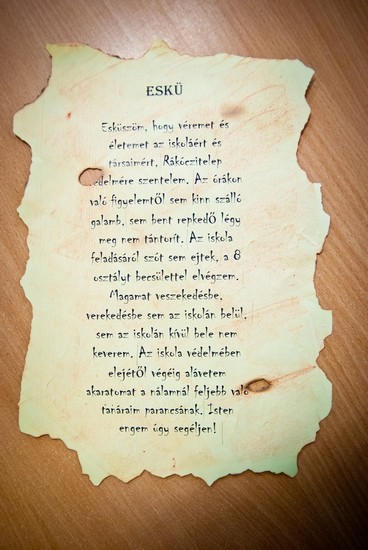 ESKÜ
Esküszöm, hogy véremet és
életemet az iskoláért és
társaimért, Rákóczitelep
védelmére szentelem. Az órákon
való figyelemtől sem kinn szálló
galamb, sem bent repkedő légy
meg nem tántorít. Az iskola
feladásáról szót sem ejtek, a 8
osztályt becsülettel elvégzem.
Magamat veszekedésbe,
verekedésbe sem az iskolán belül,
sem az iskolán kívül bele nem
keverem. Az iskola védelmében
elejétől végéig alávetem
akaratomat a nálamnál feljebb való
tanáraim parancsának. Isten
engem úgy segéljen!